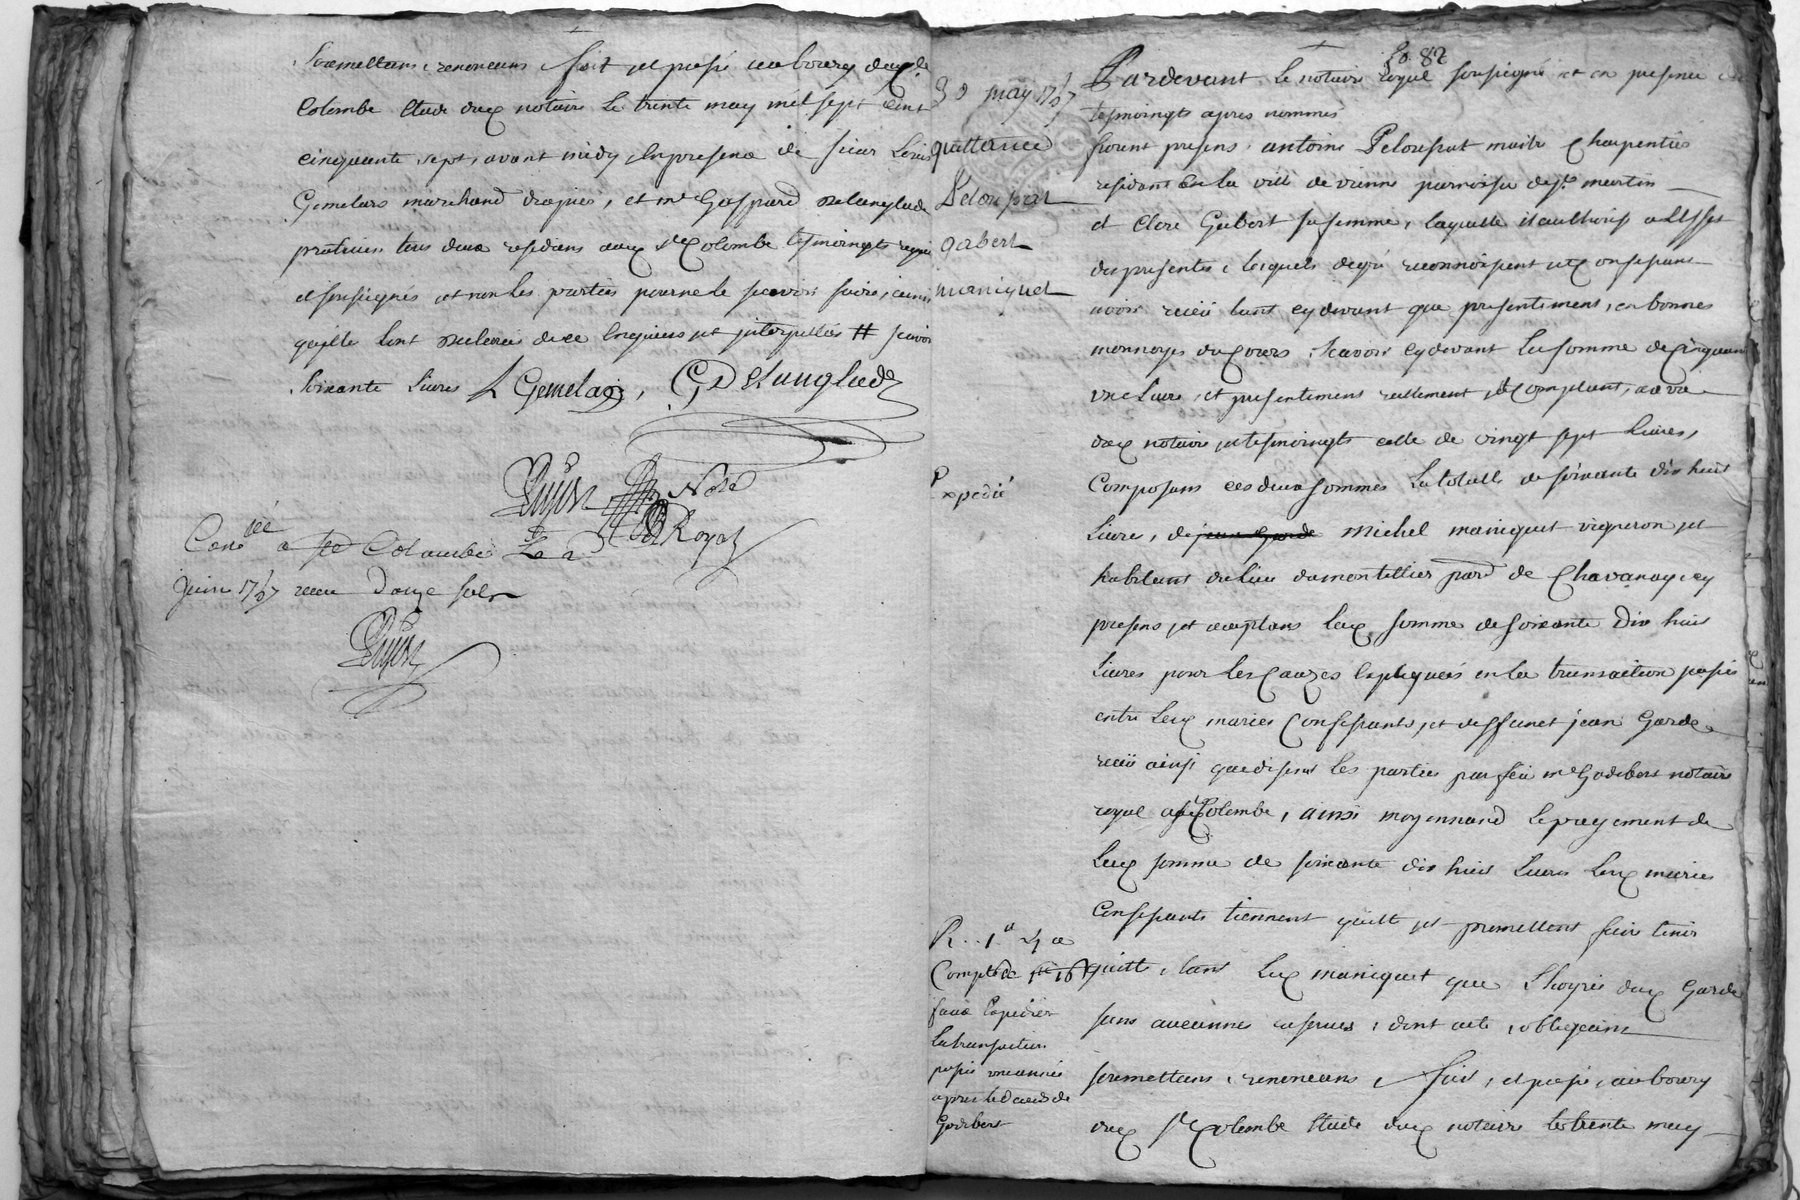 soumettans, renoncans, fait et passé au bourg dud Ste
Colombe etude dud notaire le trente may mil sept cent
cinquante sept, avant midy, en presence de sieur Louis
Gemelas marchand drapier, et me Gaspard Delanglade
praticien tous deux residans aud ste Colombe tesmoingts requis
et soussignés et non les parties pour ne le scavoir faire, ainsi
qu'elle ont declaré de ce enquises et interpellées # scavoir
soixante livres L Gemelas, G Delanglade
Guyon Nore
Royal
Coné a ste Colombe Le 2
Juin 1757 receu Douze sols
Guyon
fo. 82
30 may 1757
quittance
Peloussat
gabert
maniquet
Expedié
R. 1a
Compte de
faut expedier
la transaction
passée une année
apres le deceds de
Godibert
Pardevant le notaire royal soussigné et en presence des
tesmoingts apres nommés
furent presens, antoine Peloussat maitre charpentier
residant en la ville de vienne parroisse de st martin
et Clere Gabert sa femme, laquelle il authorise a l'effet
des presentes, lesquels de gré reconnoissent et confessent
avoir receü tant cy devant que presentement, en bonnes
monnoyes du cours, scavoir cy devant la somme de cinquante
une livre, et presentement reellement et comptant, au vû
dud notaire et tesmoingts celle de vingt sept livres,
composans ces deux sommes la totalle de soixante dix huit
livres, de jean garde michel maniquet vigneron et
habitant du lieu du montellier parse de Chavanay icy
present et acceptant lad somme de soixante dix huit
livres pour les cauzes expliquées en la transaction passée
entre lesd mariés confessants, et deffunct jean Garde
receü ainsi que disent les parties par feu me Godibert notaire
royal a ste Colombe, ainsi moyennand le payement de
lad somme de soixante dix huit livres lesd mariés
confessants tiennent quitte et promettent faire tenir
quitte, tant led maniquet que l'hoyrie dud Garde
sans aucunnes reserves, dont acte, obligeans
soumettans, renoncans, fait, et passé, au bourg
dud ste Colombe etude dud notaire le trente may